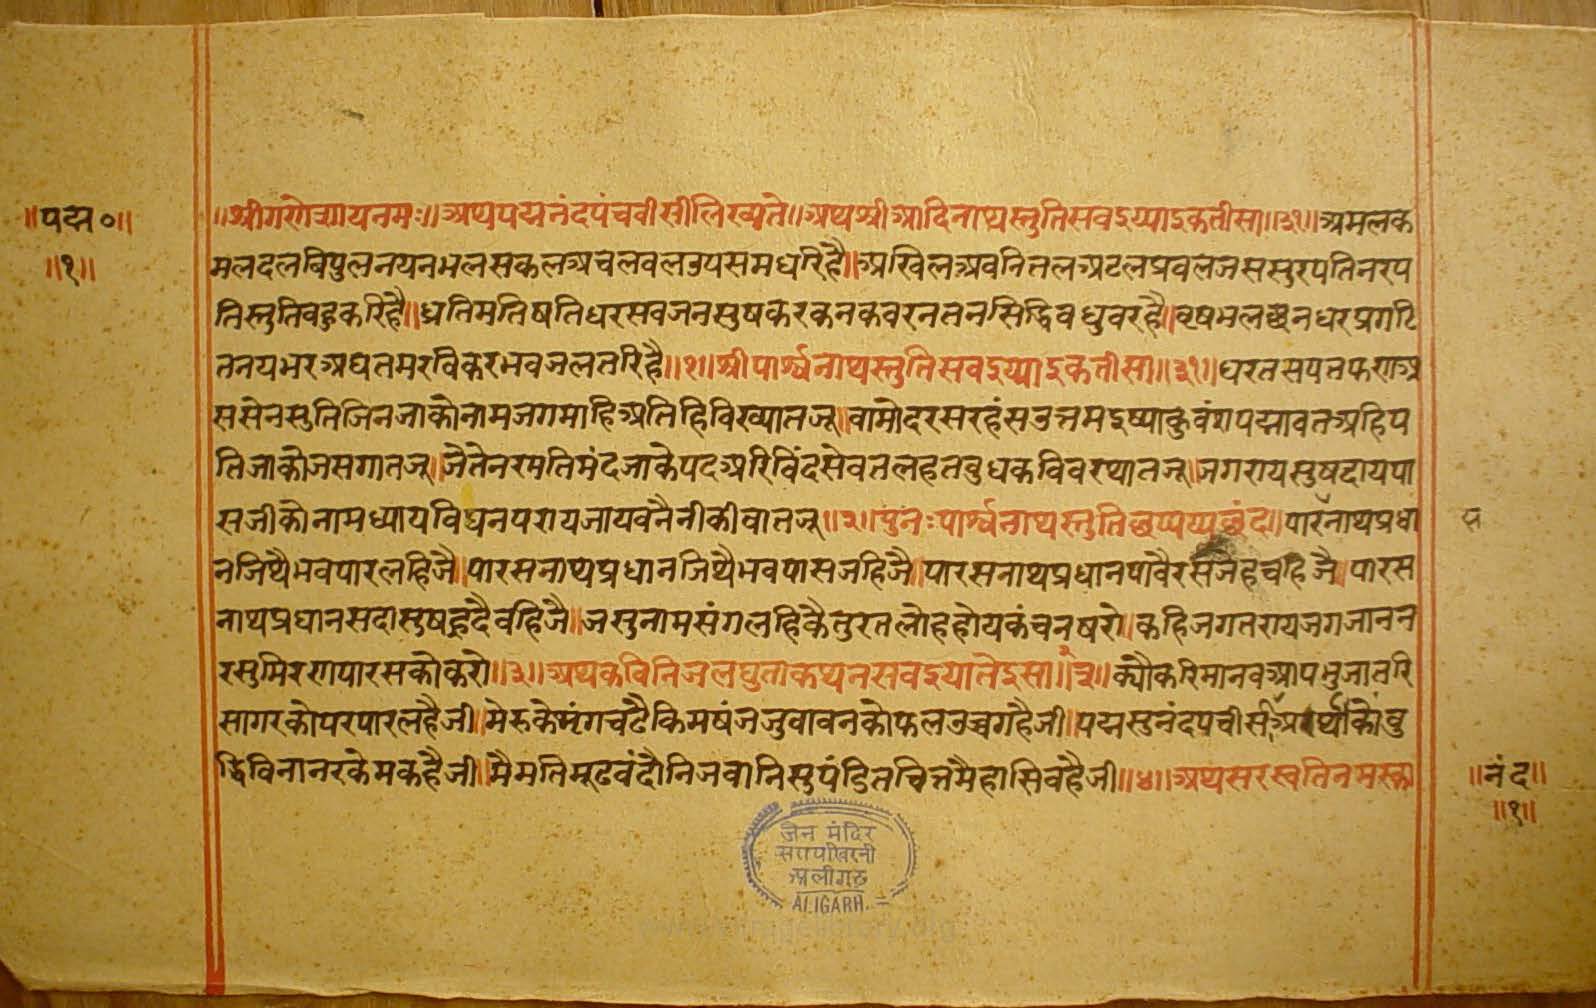 ॥पद्म०॥
॥१॥
॥श्रीगणेशायनमः॥अथपद्मनंदपंचवीसीलिख्यते॥अथश्रीआदिनाथस्तुतिसवइय्याइकतीसा॥३१॥अमलक
मलदलबिपुलनयनभलसकलअचलवलउपसमधरिहै॥अखिलअवनितलअटलप्रवलजससुरपतिनरप
तिस्तुतिवहुकरिहै॥ध्रतिमतिषतिधरसवजनसुषकरकनकवरनतनसिद्धिवधुवरहै॥वृषभलञ्छनधरप्रगटि
तनयभरअघतमरविकरभवजलतरिहै॥१॥श्रीपार्श्वनाथस्तुतिसवइय्याइकतीसा॥३१॥धरतसपतफणअ
ससेनसुतिजिनजाकोनामजगमाहिअतिहिविख्यातजू॥वामोदरसरहंसउत्तमइष्याकुवंशपद्मावतअहिप
तिजाकोजसगातजू॥जैतेनरमतिमंदजाकेपदअरिविंदसेवतलहतवुधकविवरथातजू॥जगरायसुषदायपा
सजीकोनामध्यायविघनपरायजायवनैनीकीवातजू॥२॥पुनःपार्श्वनाथस्तुतिछप्पय्यछंद॥पारनाथप्रधा
स
नजिथैभवपारलहिजै॥पारसनाथप्रधानजिथैभवपासजहिजै॥पारसनाथप्रधानपावैरसजेहचहिजै॥पारस
नाथप्रधानसदासुषहूदैवहिजै॥जसुनामसंगलहिकैतुरतलोहहोयकंचनषरो॥कहिजगतरायजगजानन
रसुमिरणपारसकोकरो॥३॥अथकविनिजलघुताकथनसवइयातेइसा॥२३॥क्यौकरिमानवआपभुजातरि
सागरकोपरपारलहैजी॥मेरुकेमृंगचढैकिमषंजजुवावनकोफलउच्चगहैजी॥पद्मसुनंदपचीसीअर्थकोवु
द्धिविनानरकेमकहैजी॥मैमतिमूढवंदौनिजवानिसुपंडितचित्तमैहासिवहैजी॥४॥अथसरस्वतिनमस्का
॥नंद॥
॥१॥
जैन मंदिर
अलीगढ
ALIGARH.